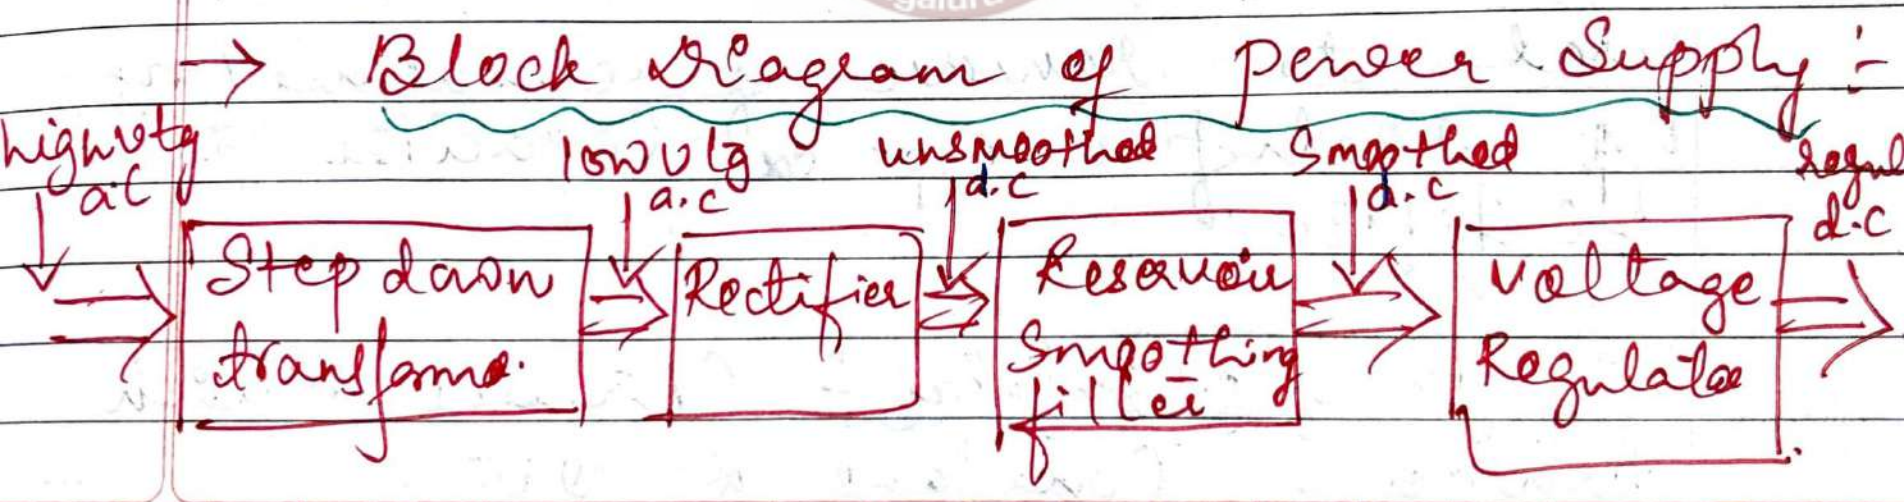 → Block Diagram of power Supply :-
high vtg
a.c
low vtg
a.c
unsmoothed
d.c
Smoothed
d.c
regul
d.c
Step down
transforme.
Rectifier
Reservoir
Smoothing
filter
Voltage
Regulator